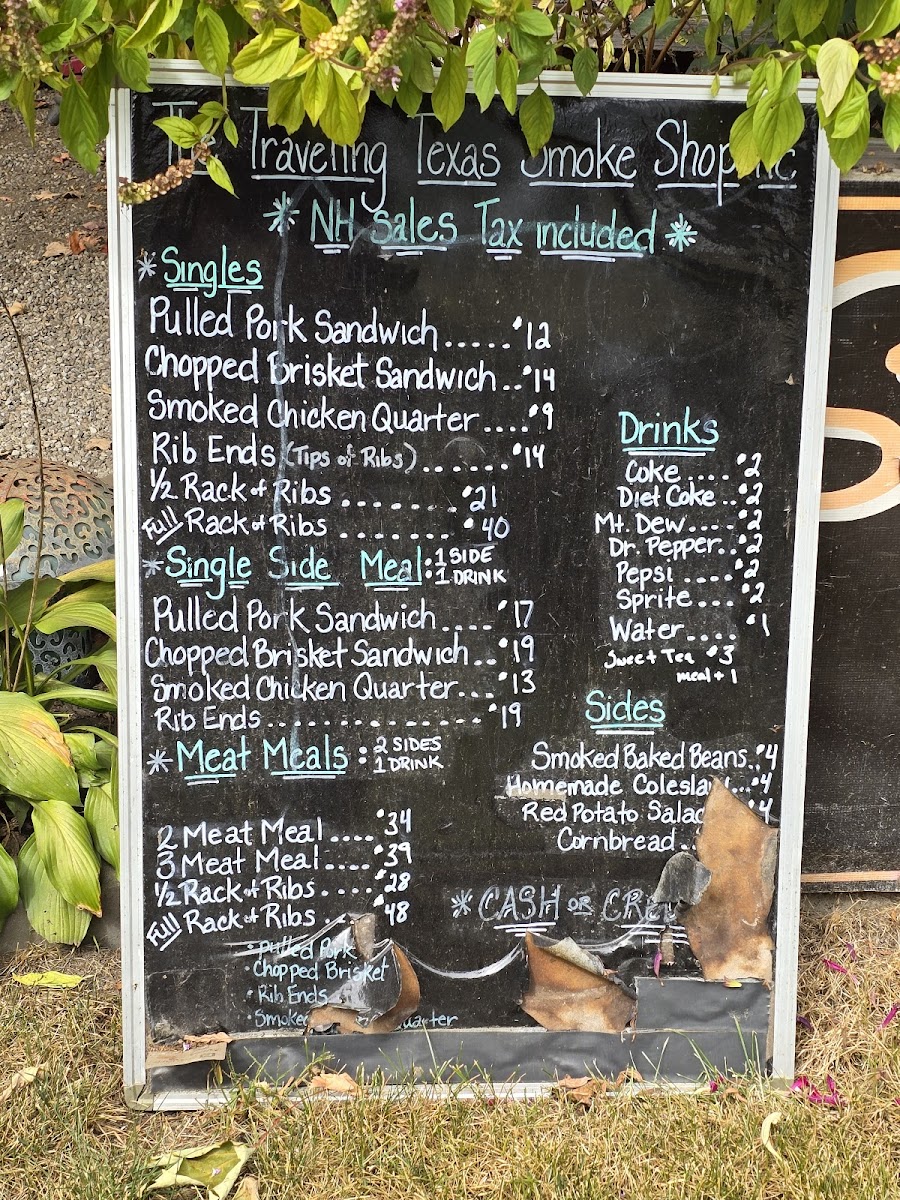 The Traveling Texas Smoke Shop
* NH Sales Tax included *
* Singles
Pulled Pork Sandwich ..... $12
Chopped Brisket Sandwich .. $14
Smoked Chicken Quarter .... $9
Rib Ends (Tips of Ribs) ...... $14
1/2 Rack of Ribs ....... $21
Full Rack of Ribs ....... $40
* Single Side Meal: 1 SIDE
1 DRINK
Pulled Pork Sandwich .... $17
Chopped Brisket Sandwich .. $19
Smoked Chicken Quarter... $13
Rib Ends .............. $19
* Meat Meals : 2 SIDES
1 DRINK
2 Meat Meal .... $34
3 Meat Meal .... $39
1/2 Rack of Ribs .... $28
Full Rack of Ribs .. $48
• Pulled Pork
• Chopped Brisket
• Rib Ends
• Smoked
Drinks
Coke .... $2
Diet Coke .. $2
Mt. Dew.... $2
Dr. Pepper.. $2
Pepsi .... $2
Sprite... $2
Water.... $1
Sweet Tea $3
meal + 1
Sides
Smoked Baked Beans.. $4
Homemade Coleslaw.. $4
Red Potato Salad $4
Cornbread ..
* CASH OR